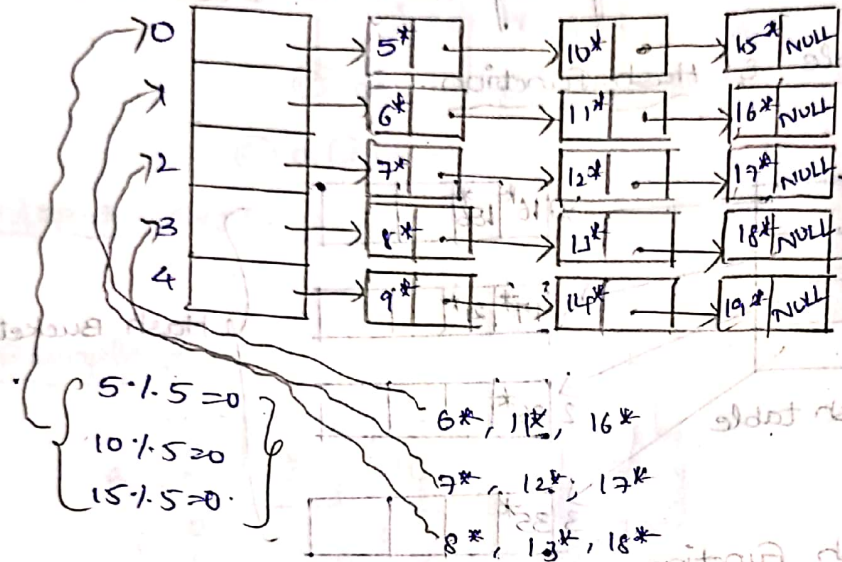 0 5* 10* 15* NULL
1 6* 11* 16* NULL
2 7* 12* 17* NULL
3 8* 13* 18* NULL
4 9* 14* 19* NULL
5 % 5 = 0
10 % 5 = 0
15 % 5 = 0
6*, 11*, 16*
7*, 12*, 17*
8*, 13*, 18*